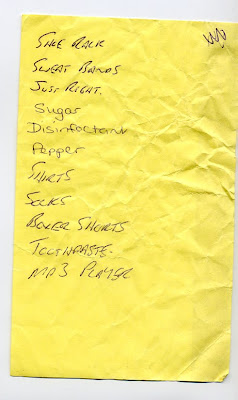 SHOE RACK
SWEAT BANDS
JUST RIGHT.
Sugar
Disinfectant
Pepper
SHIRTS
SOCKS
BOXER SHORTS
TOOTHPASTE.
MP3 PLAYER